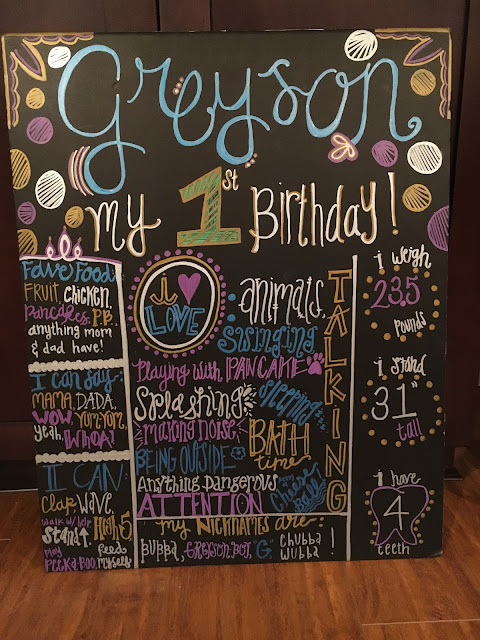 Greyson
my 1st Birthday!
Fave Food:
FRUIT, CHICKEN,
PANCAKES, P.B.,
anything mom
& dad have!
I can say:
MAMA, DADA,
WOW, YUM-YUM,
yeah, WHOA!
I CAN:
Clap, wave,
walk w/ help
High 5,
STAND,
feed
myself
play
PEEK-a-BOO,
I
LOVE
animals,
swinging
Playing with PANCAKE
Splashing
sleeping
making noise
BATH
time
BEING OUTSIDE
Anything Dangerous
ATTENTION
Cheese
Ball
TALKING
my Nicknames are:
BUBBA, GREYSON-BOY, "G"
Chubba
Wubba!
i weigh
23.5
pounds
i stand
31"
tall
i have
4
teeth